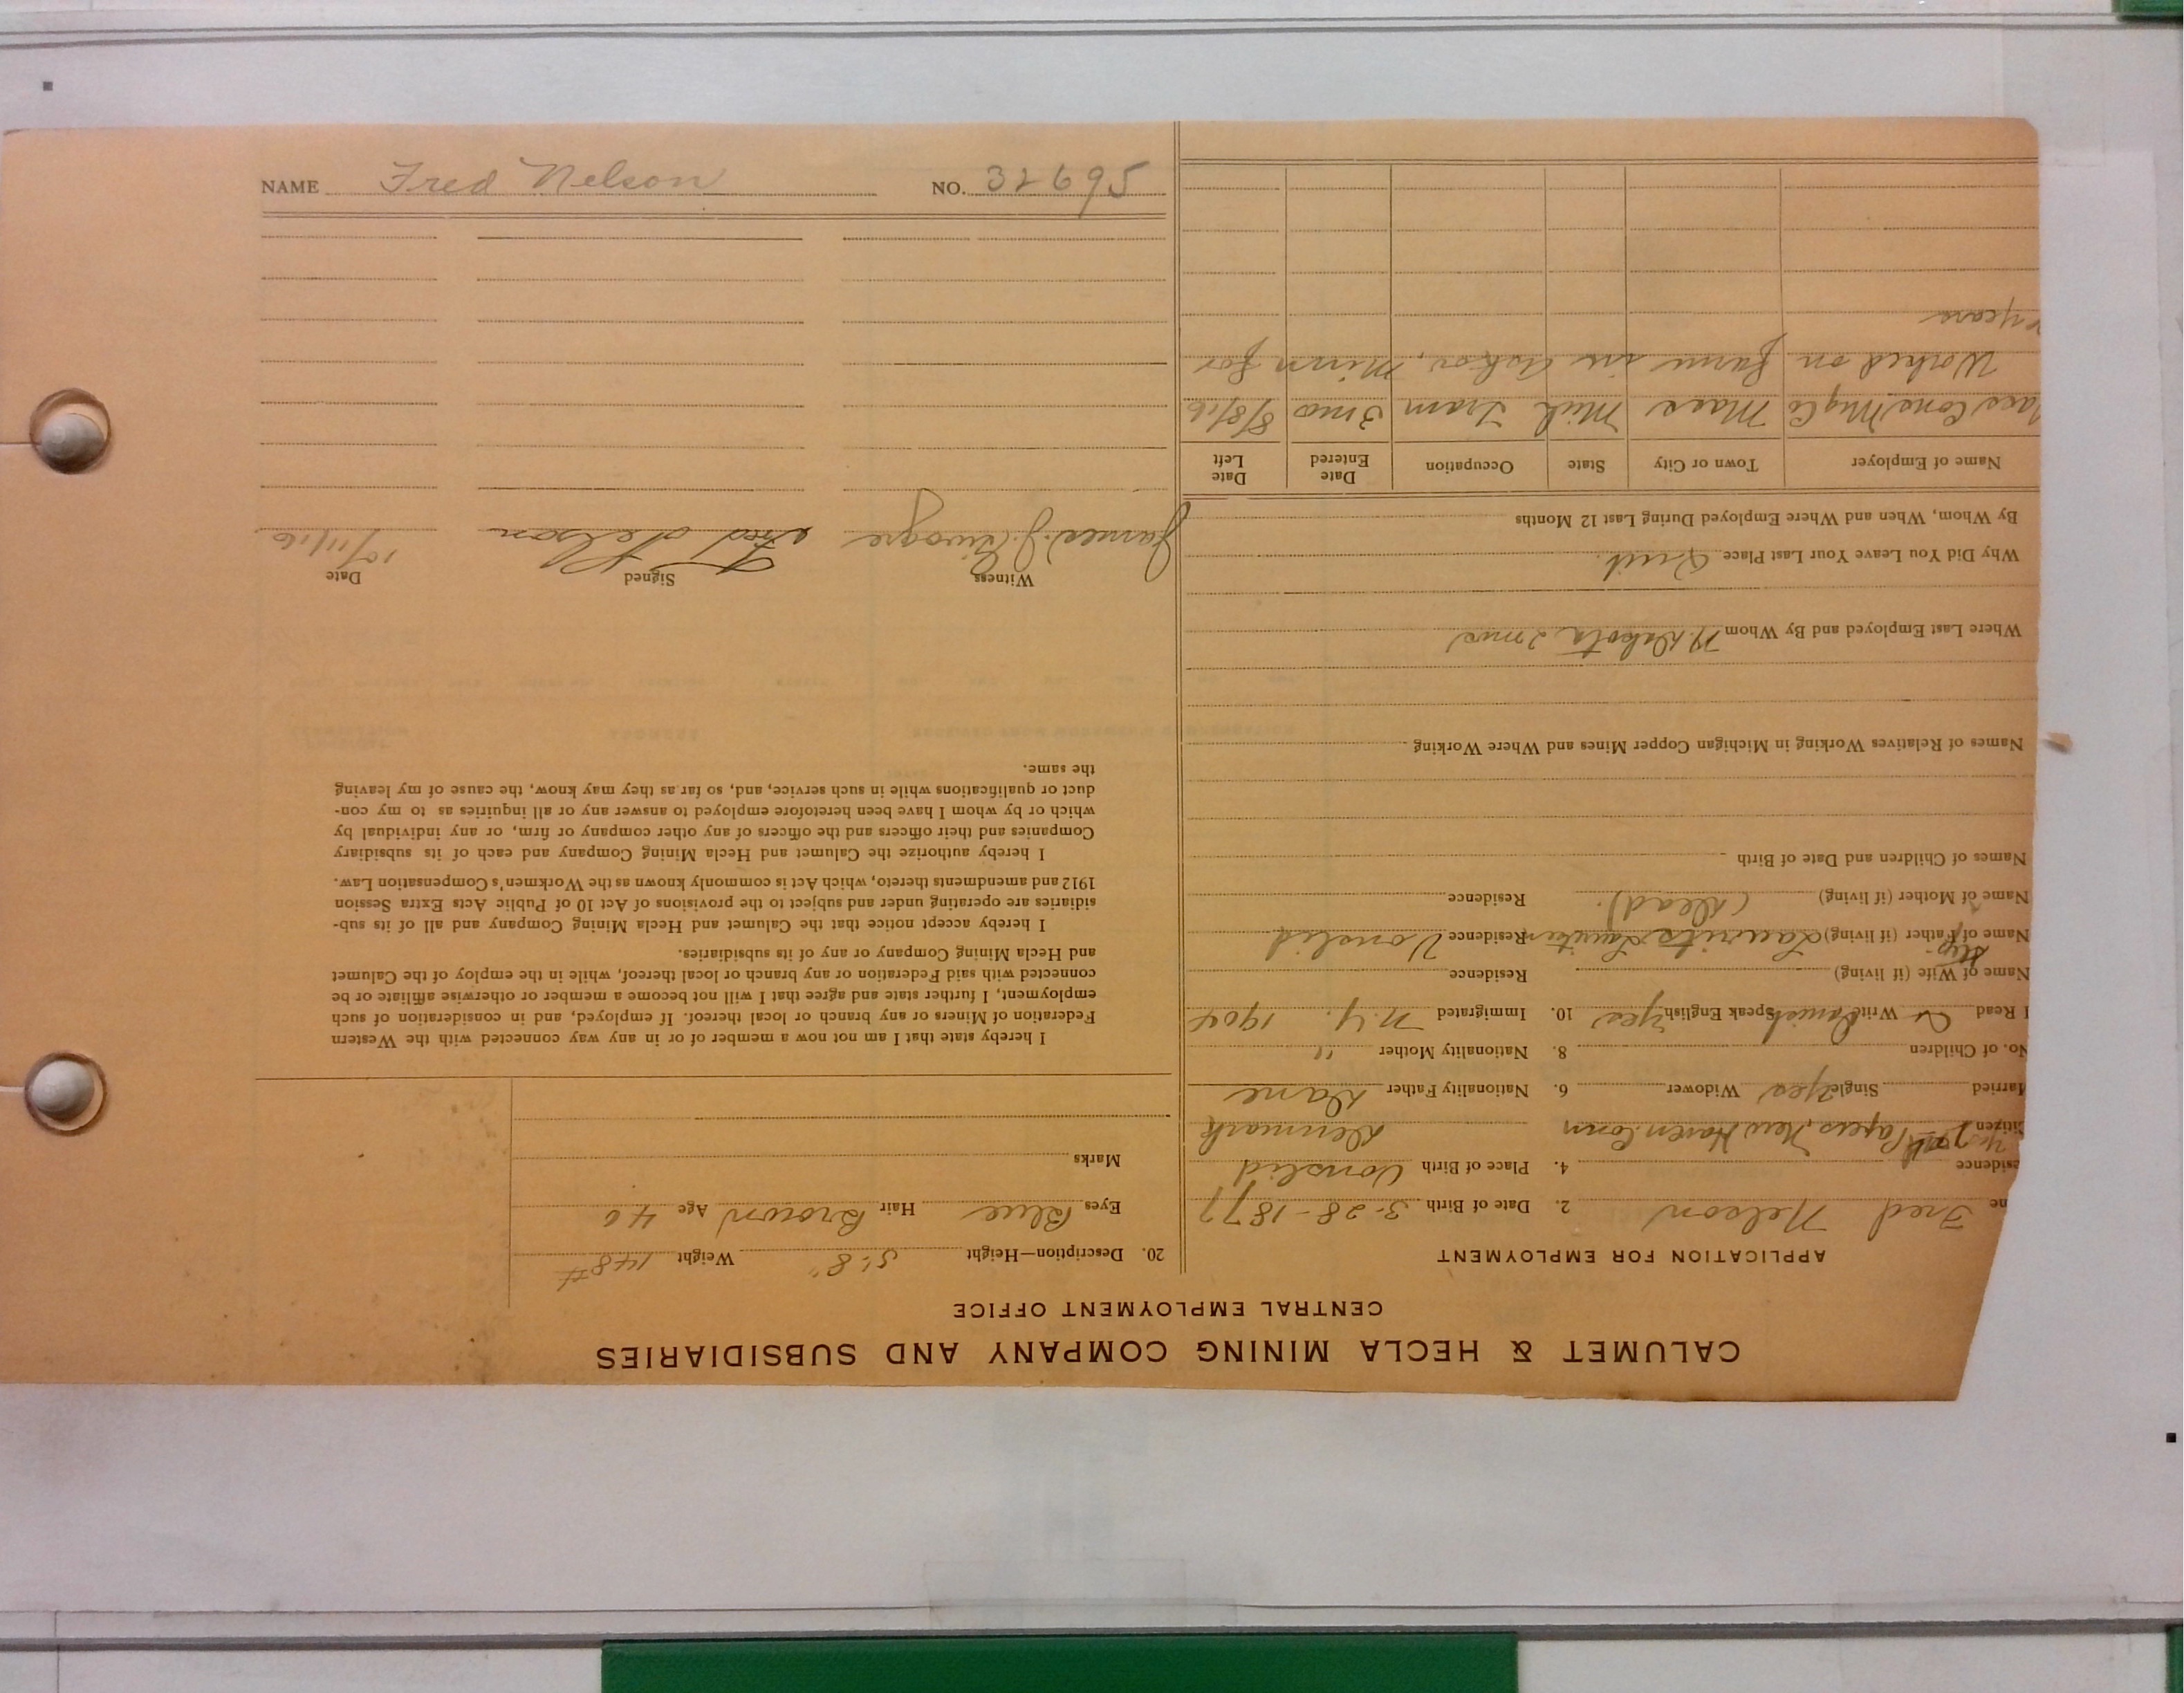 NAME Fred Nelson NO. 32695
CALUMET & HECLA MINING COMPANY AND SUBSIDIARIES
CENTRAL EMPLOYMENT OFFICE
APPLICATION FOR EMPLOYMENT
me Fred Nelson 2. Date of Birth 3-28-1877
esidence 4. Place of Birth Vonslid
Citizen Papers, New Haven Conn Denmark
Married Single yes Widower 6. Nationality Father Dane
No. of Children 8. Nationality Mother "
I Read Write Danish Speak English yes 10. Immigrated N.Y. 1904
Name of Wife (if living) Residence
Step
Name of Father (if living) Laurits Residence Vonslid
Name of Mother (if living) (Dead). Residence
Names of Children and Date of Birth
Names of Relatives Working in Michigan Copper Mines and Where Working
Where Last Employed and By Whom N. Dakota 2 mos
Why Did You Leave Your Last Place Quit.
By Whom, When and Where Employed During Last 12 Months
Name of Employer Town or City State Occupation Date Entered Date Left
Mass Cons Mng Co Mass Mich Tram 3 mos 8/8/16
Worked on farm in Askov, Minn for
years
20. Description—Height 5'8" Weight 148#
Eyes Blue Hair Brown Age 40
Marks
I hereby state that I am not now a member of or in any way connected with the Western
Federation of Miners or any branch or local thereof. If employed, and in consideration of such
employment, I further state and agree that I will not become a member or otherwise affiliate or be
connected with said Federation or any branch or local thereof, while in the employ of the Calumet
and Hecla Mining Company or any of its subsidiaries.
I hereby accept notice that the Calumet and Hecla Mining Company and all of its sub-
sidiaries are operating under and subject to the provisions of Act 10 of Public Acts Extra Session
1912 and amendments thereto, which Act is commonly known as the Workmen's Compensation Law.
I hereby authorize the Calumet and Hecla Mining Company and each of its subsidiary
Companies and their officers and the officers of any other company or firm, or any individual by
which or by whom I have been heretofore employed to answer any or all inquiries as to my con-
duct or qualifications while in such service, and, so far as they may know, the cause of my leaving
the same.
Witness Signed Date
James J. Fred Nelson 10/11/16